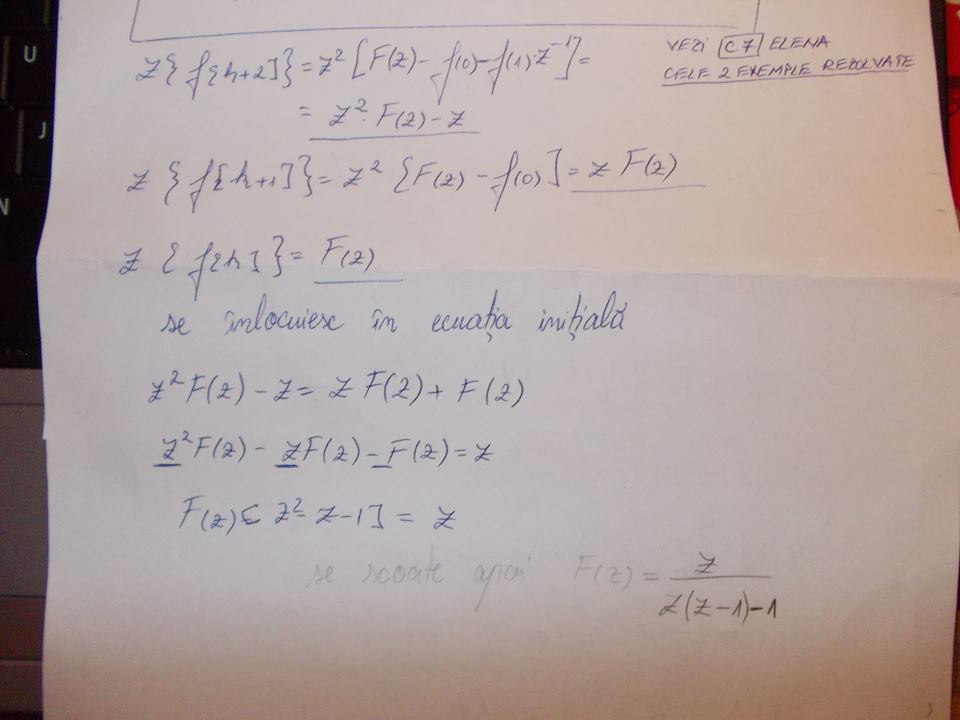 Z{f[k+2]} = z² [F(z) - f(0) - f(1)·z⁻¹] =
= z²·F(z) - z
VEZI C7 ELENA
CELE 2 EXEMPLE REZOLVATE
Z{f[k+1]} = z² {F(z) - f(0)] = z F(z)
Z{f[k]} = F(z)
se înlocuiesc în ecuația inițială
z²F(z) - z = z F(z) + F(z)
z²F(z) - zF(z) - F(z) = z
F(z)[z² - z - 1] = z
se scoate apoi F(z) = z / z(z-1)-1
U
J
N